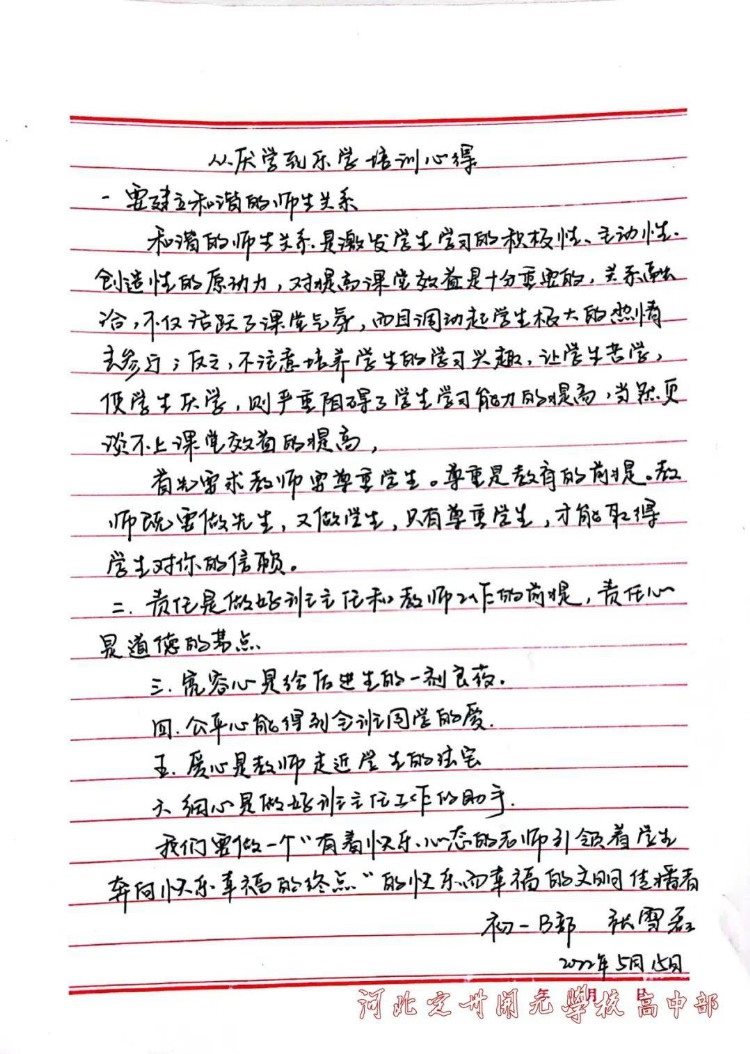 从厌学到乐学培训心得
一要建立和谐的师生关系
和谐的师生关系是激发学生学习的积极性、主动性、
创造性的原动力，对提高课堂效益是十分重要的，关系融
洽，不仅活跃了课堂气氛，而且调动起学生极大的热情
去参与；反之，不注意培养学生的学习兴趣，让学生苦学，
使学生厌学，则严重阻碍了学生学习能力的提高，当然更
谈不上课堂效益的提高，
首先要求教师要尊重学生。尊重是教育的前提。教
师既要做先生，又做学生，只有尊重学生，才能取得
学生对你的信赖。
二．责任是做好班主任和教师工作的前提，责任心
是道德的基点
三．宽容心是给后进生的一剂良药．
四．公平心能得到全班同学的爱．
五．爱心是教师走近学生的法宝
六细心是做好班主任工作的助手．
我们要做一个“有着快乐心态的老师引领着学生
奔向快乐幸福的终点”的快乐而幸福的文明传播者
初一B部 张雪磊
2022年5月15日
年 月 日
河北定州開元學校高中部